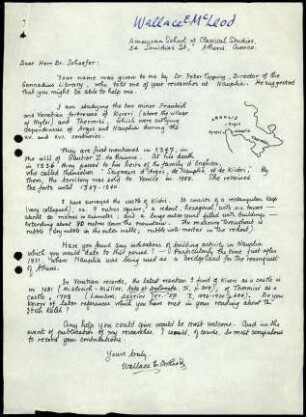 Wallace E McLeod
American School of Classical Studies,
54 Souidias St., Athens, Greece.
Dear Herr Dr. Schaefer:
Your name was given to me by Dr. Peter Topping, Director of the
Gennadius Library, who told me of your researches at Nauplia. He suggested
that you might be able to help me.
I am studying the two minor Frankish
and Venetian fortresses of Kiveri (above the village
of Myloi) and Thermisi, which were outlying
dependencies of Argos and Nauplia during the
xiv and xv centuries.
ARGOLIS
They are first mentioned in 1347, in
the will of Gautier II de Brienne. At his death
in 1356 they passed to his heirs of the family of Enghien,
who called themselves "Seigneurs d'Argos, de Nauplie, et de Kivéri." By
them, the territory was sold to Venice in 1388. She retained
the forts until 1537-1540.
I have surveyed the castle of Kivéri. It consists of a rectangular keep
(very collapsed), 9 meters square; a redout, hexagonal, with its major
and a large outer ward filled with buildings
extending about 90 meters down the mountainside. The masonry throughout is
rubble (dry rubble in the outer walls, rubble with mortar in the redout).
Have you found any indications of building activity in Nauplia
which you would date to this period? Particularly, the time just after
1311, when Nauplia was being used as a bridgehead for the reconquest
of Athens.
In Venetian records, the latest mention I find of Kiveri as a castle is
in 1481
of Thermisi as a
castle is 1705
Do you
know of later references which you have met in your reading about the
Any help you could give would be most welcome. And in the
event of publication of my researches, I would, of course, be most scrupulous
to record your contributions.
Yours truly,
Wallace E. McLeod